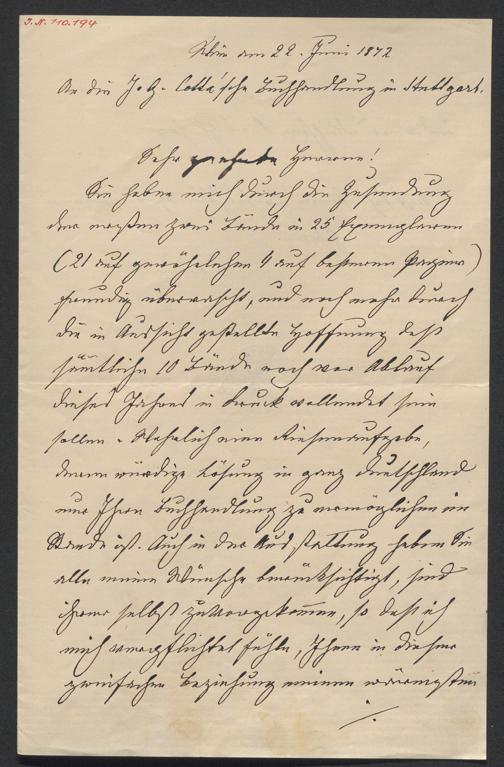 I.N. 110.194
Wien am 22. Juni 1872
An die J. G. Cotta'sche Buchhandlung in Stuttgart.
Sehr geehrte Herren!
Sie haben mich durch die Zusendung
der ersten zwei Bände in 25 Exemplaren
(21 auf gewöhnlichem 4 auf besserem Papier)
freudig überrascht, und noch mehr durch
die in Aussicht gestellte Hoffnung daß
sämtliche 10 Bände noch vor Ablauf
dieses Jahres in Druck vollendet sein
sollen. Wahrlich eine Riesenaufgabe,
deren würdige Lösung in ganz Deutschland
nur Ihre Buchhandlung zu ermöglichen im
Stande ist. Auch in der Ausstattung haben Sie
alle meine Wünsche berücksichtigt, sind
ihnen selbst zuvorgekommen, so daß ich
mich verpflichtet fühle, Ihnen in dieser
zweifachen Beziehung meinen wärmsten
./.